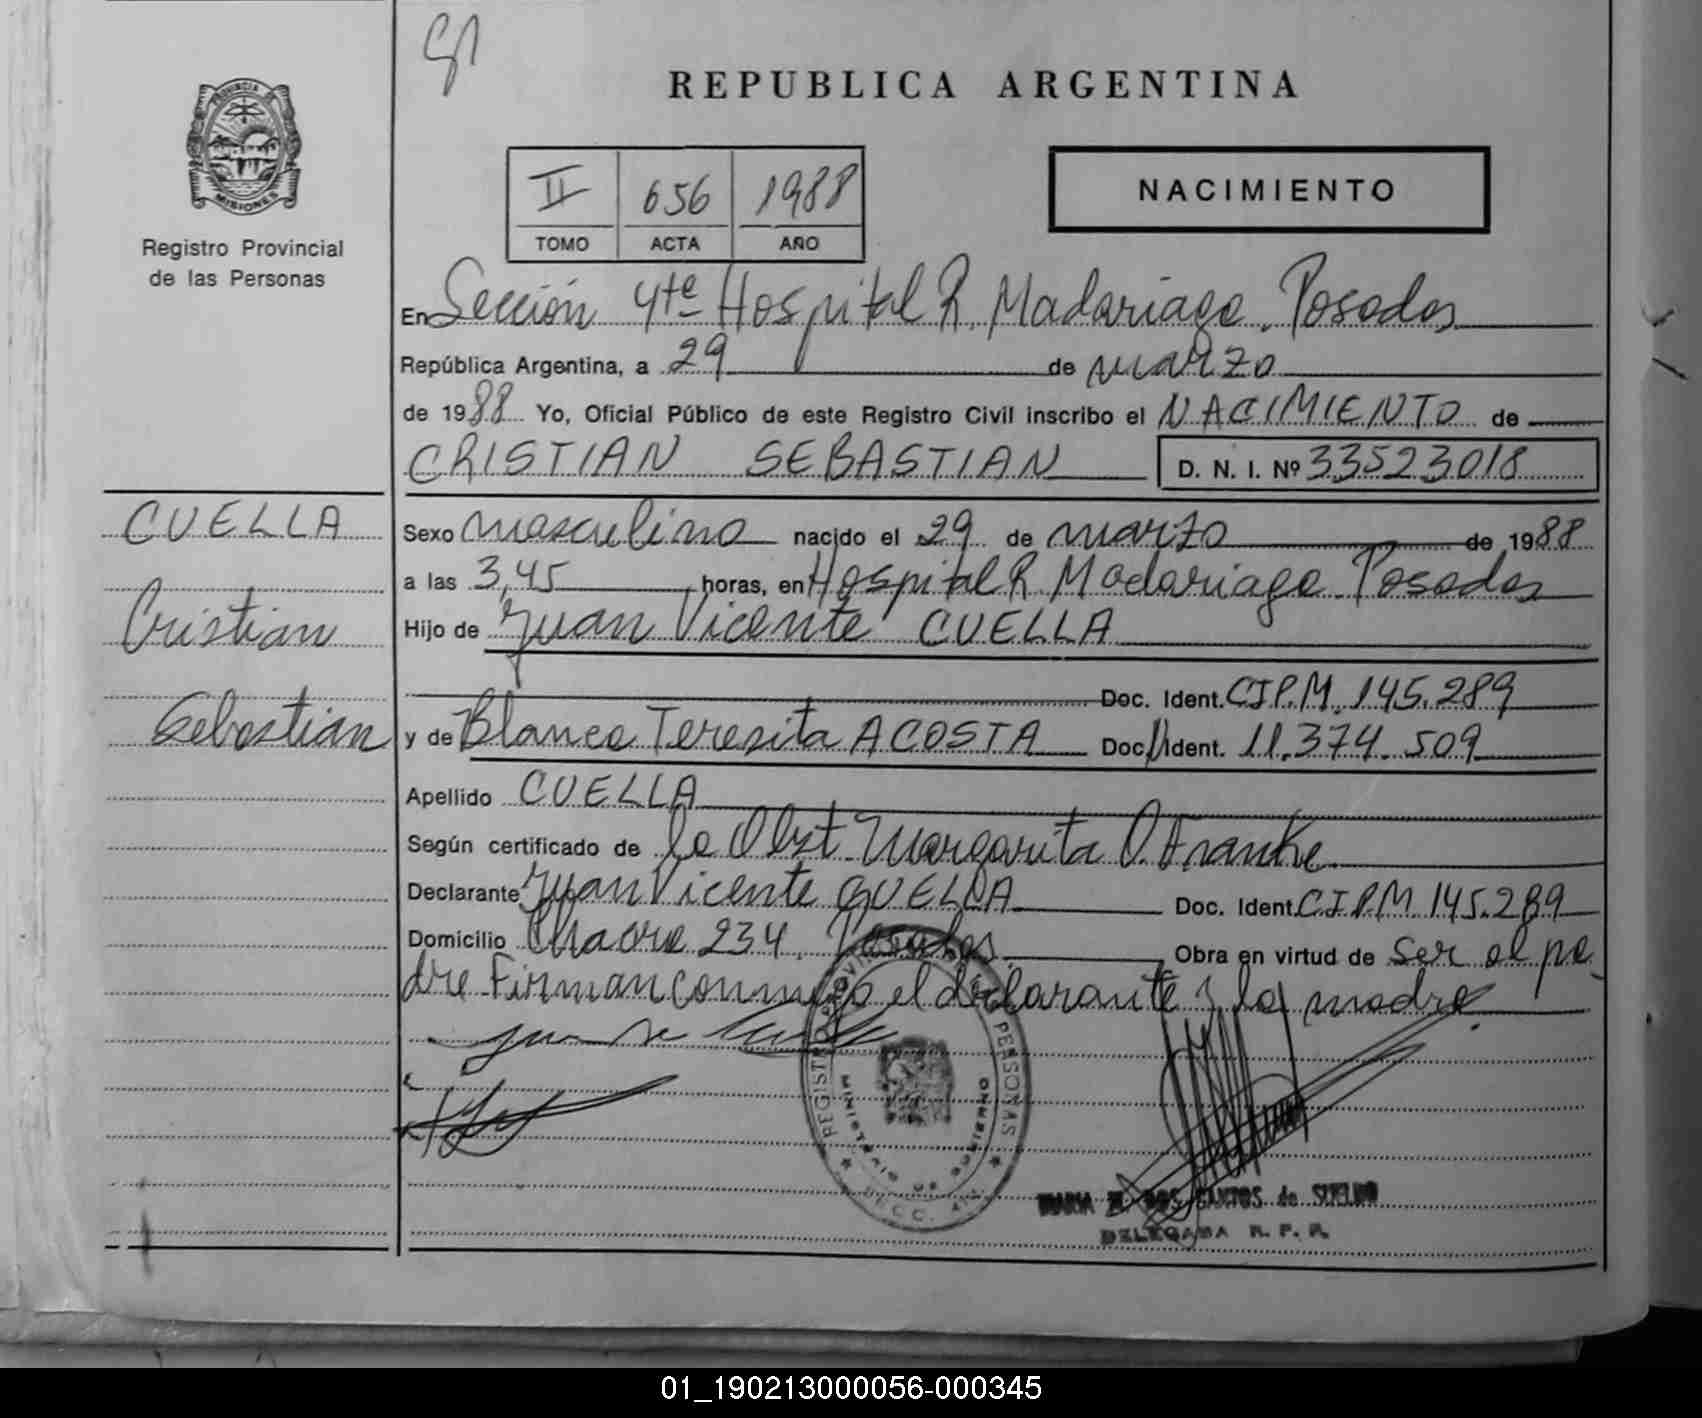 REPUBLICA ARGENTINA
PROVINCIA DE
MISIONES
Registro Provincial
de las Personas
II 656 1988
TOMO ACTA AÑO
NACIMIENTO
En Sección 4te Hospital R. Madariaga. Posadas
República Argentina, a 29 de marzo
de 1988 Yo, Oficial Público de este Registro Civil inscribo el NACIMIENTO de
CRISTIAN SEBASTIAN D. N. I. Nº 33523018
CUELLA
Cristian
Sebastian
Sexo masculino nacido el 29 de marzo de 1988
a las 3,45 horas, en Hospital R. Madariaga. Posadas
Hijo de Juan Vicente CUELLA
Doc. Ident. CIP.M. 145.289
y de Blanca Teresita ACOSTA Doc. Ident. 11.374.509
Apellido CUELLA
Según certificado de la Obst. Margarita O. Franke
Declarante Juan Vicente CUELLA Doc. Ident. C.I.P.M 145.289
Domicilio Chacra 234. Posadas. Obra en virtud de ser el pa
dre. Firman conmigo el declarante y la madre.
REGISTRO PROVINCIAL DE LAS PERSONAS
MINISTERIO DE GOBIERNO
MARIA DOS SANTOS de SUELDO
DELEGADA R. P. P.
01_190213000056-000345